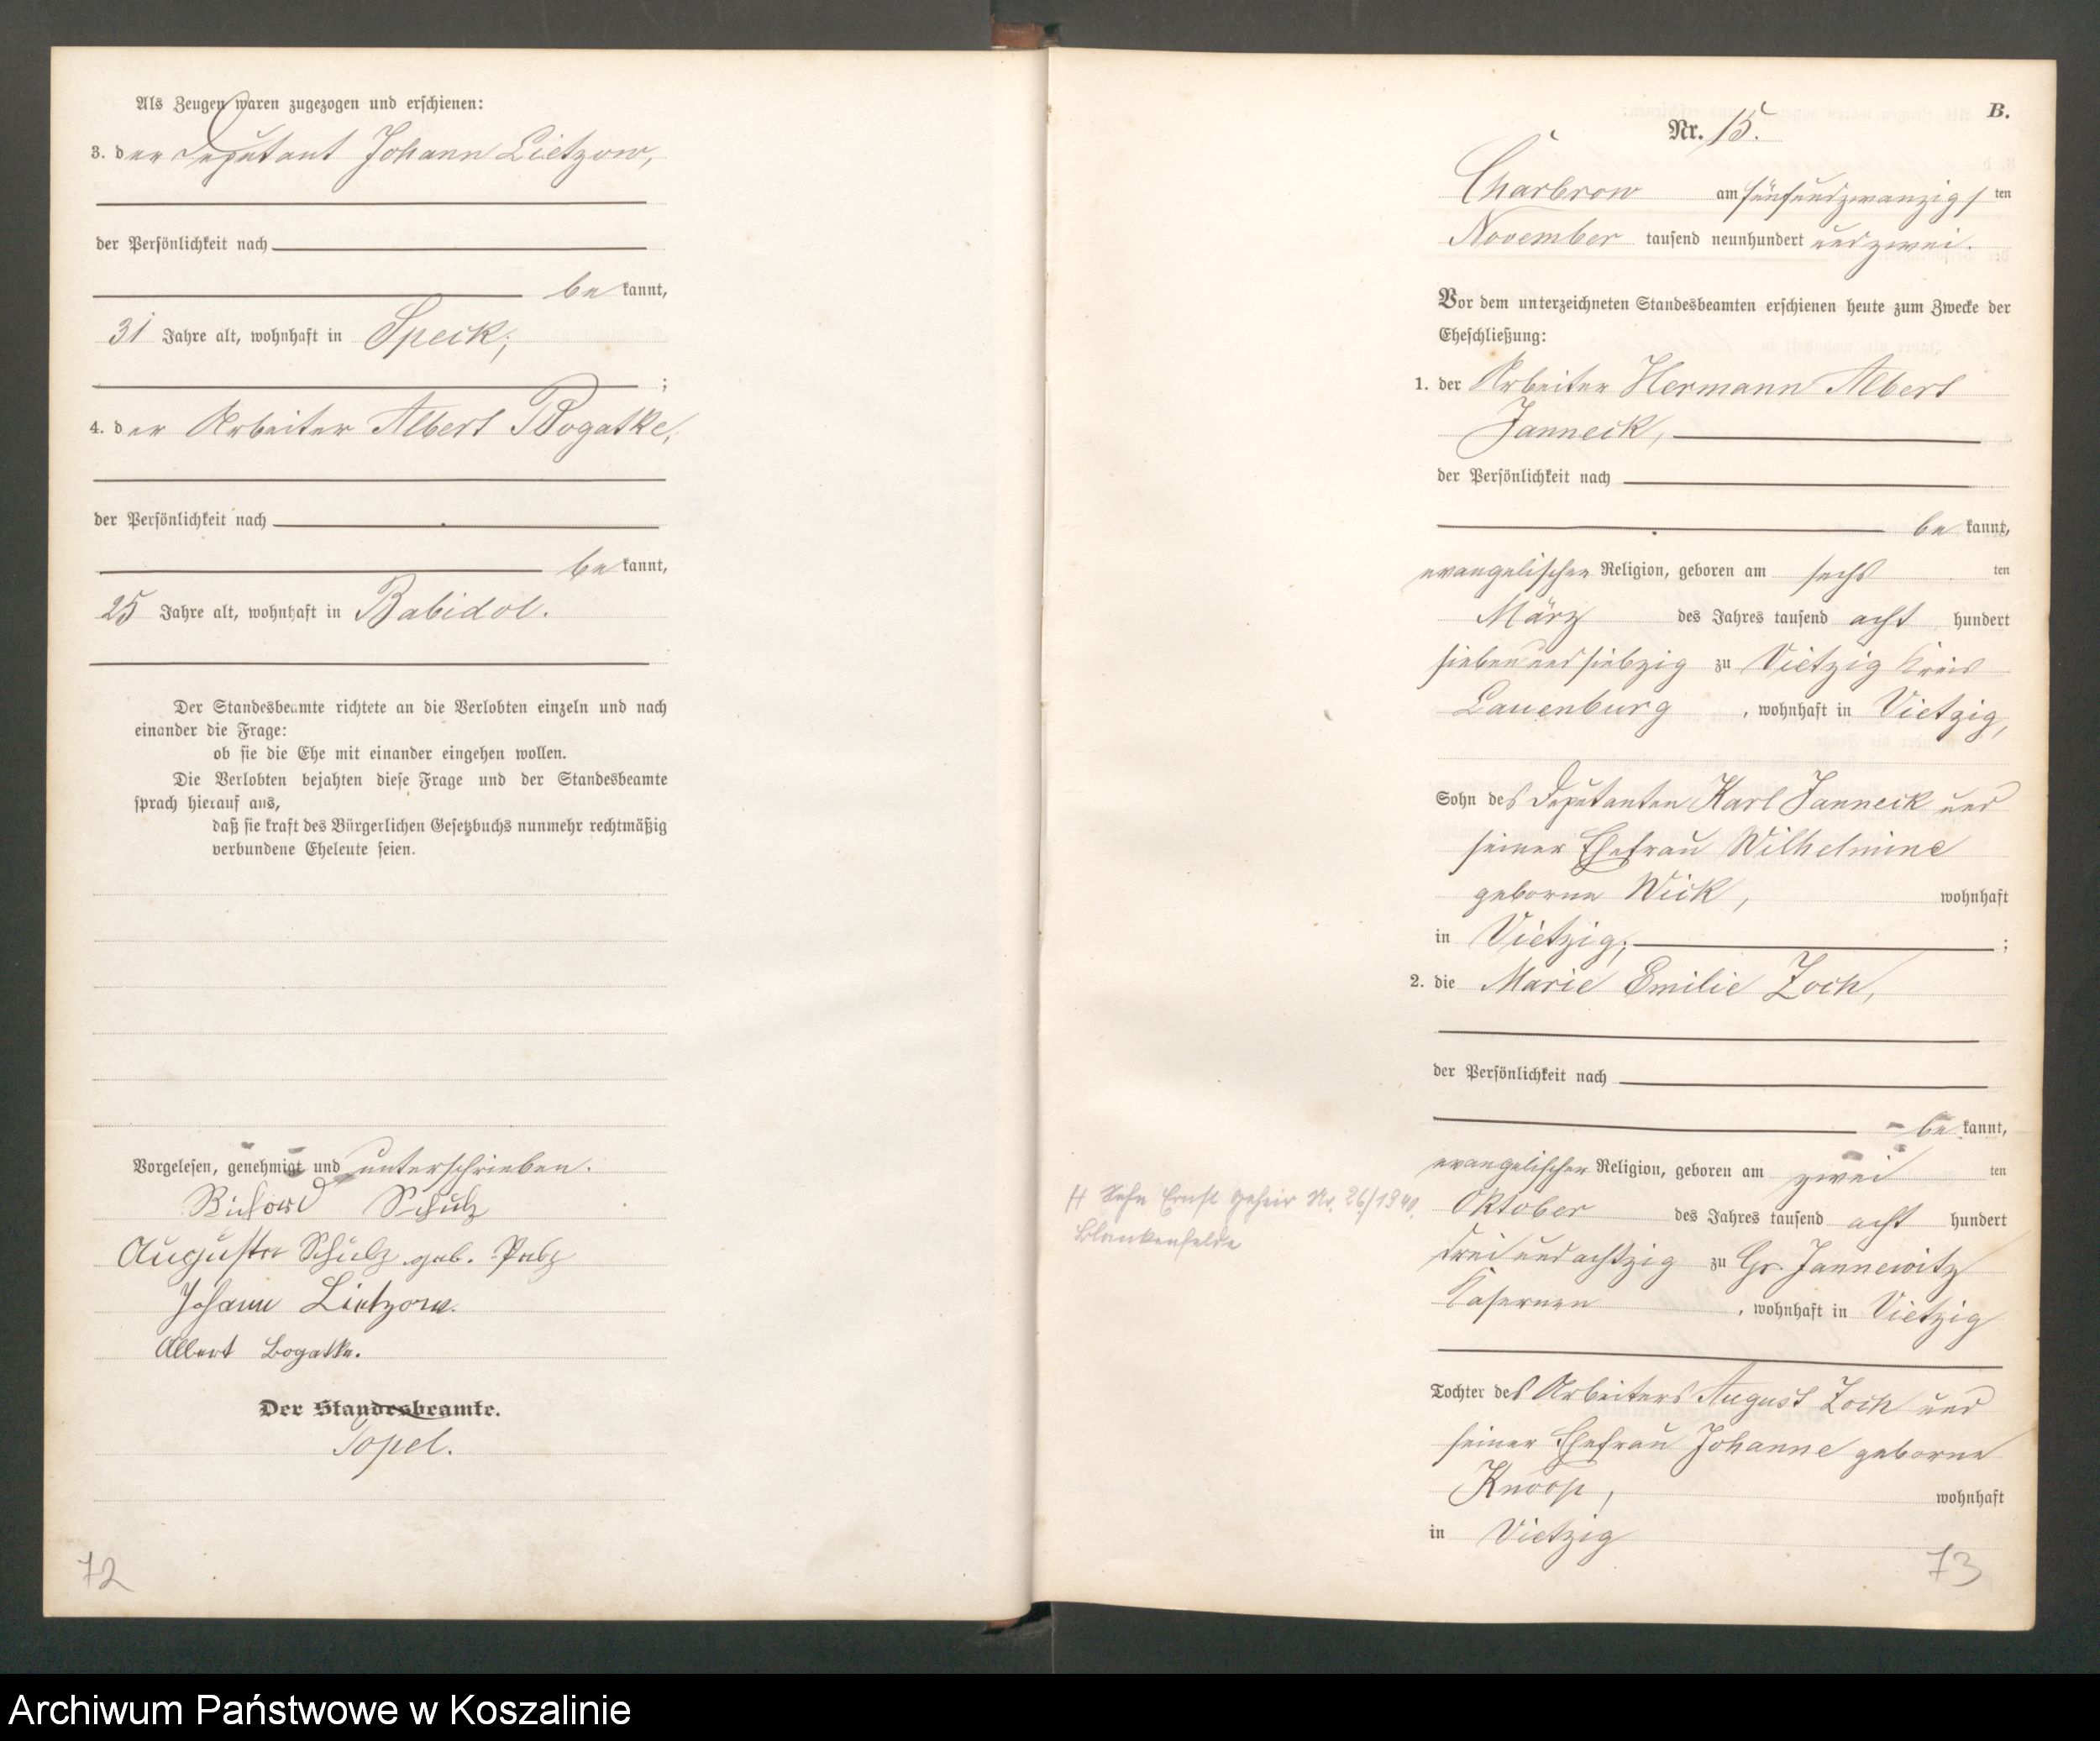 Als Zeugen waren zugezogen und erschienen:
3. der Deputant Johann Lietzow,
der Persönlichkeit nach
be kannt,
31 Jahre alt, wohnhaft in Speck;
;
4. der Arbeiter Albert Bogatke,
der Persönlichkeit nach
be kannt,
25 Jahre alt, wohnhaft in Babidol.
Der Standesbeamte richtete an die Verlobten einzeln und nach
einander die Frage:
ob sie die Ehe mit einander eingehen wollen.
Die Verlobten bejahten diese Frage und der Standesbeamte
sprach hierauf aus,
daß sie kraft des Bürgerlichen Gesetzbuchs nunmehr rechtmäßig
verbundene Eheleute seien.
Vorgelesen, genehmigt und unterschrieben.
Richard Schulz
Auguste Schulz geb.
Johann Lietzow.
Albert Bogatke.
Der Standesbeamte.
Topel.
72
B.
Nr. 15.
Charbrow am fünfundzwanzigsten
November tausend neunhundert und zwei.
Vor dem unterzeichneten Standesbeamten erschienen heute zum Zwecke der
Eheschließung:
1. der Arbeiter Hermann Albert
Janneck,
der Persönlichkeit nach
be kannt,
evangelischer Religion, geboren am sechsten
März des Jahres tausend acht hundert
siebenundsiebzig zu Vietzig Kreis
Lauenburg , wohnhaft in Vietzig,
Sohn des Deputanten Karl Janneck und
seiner Ehefrau Wilhelmine
geborne Wick, wohnhaft
in Vietzig; ;
2. die Marie Emilie Zoch,
der Persönlichkeit nach
be kannt,
evangelischer Religion, geboren am zweiten
Oktober des Jahres tausend acht hundert
dreiundachtzig zu Gr. Jannewitz
Kasernen , wohnhaft in Vietzig
Tochter des Arbeiters August Zoch und
seiner Ehefrau Johanne geborne
Knoop, wohnhaft
in Vietzig
73
H Sohn Ernst geheir Nr. 26/1940.
Blankenfelde
Archiwum Państwowe w Koszalinie